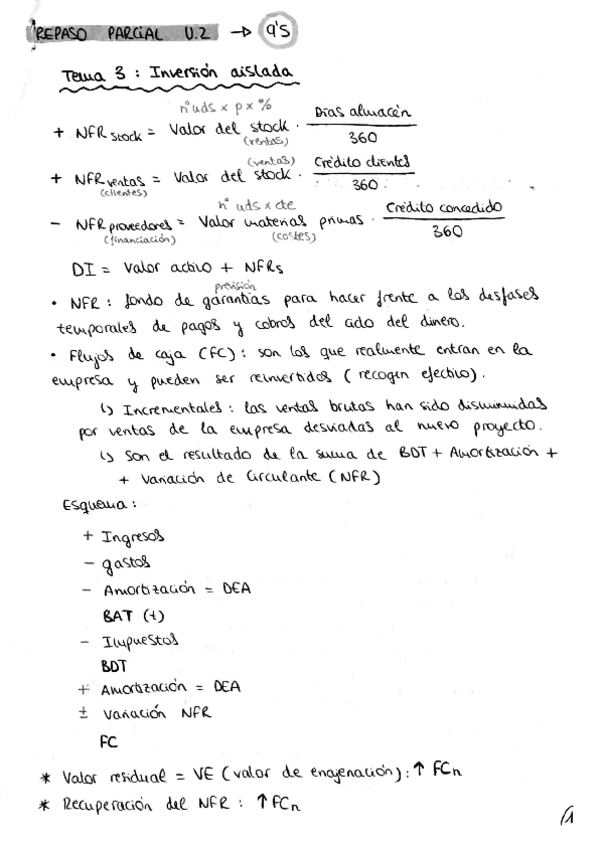 REPASO PARCIAL U.2 → 9'S
Tema 3 : Inversión aislada
nº uds x p x %
+ NFR stock = Valor del stock · Días almacén / 360
(ventas)
(ventas)
+ NFR ventas = Valor del stock · Crédito clientes / 360
(clientes)
nº uds x cte
- NFR proveedores = Valor materias primas · Crédito concedido / 360
(financiación) (costes)
DI = Valor activo + NFRs
previsión
• NFR : fondo de garantías para hacer frente a los desfases
temporales de pagos y cobros del ciclo del dinero.
• Flujos de caja (FC) : son los que realmente entran en la
empresa y pueden ser reinvertidos ( recogen efectivo ).
↳ Incrementales : las ventas brutas han sido disminuidas
por ventas de la empresa desviadas al nuevo proyecto.
↳ Son el resultado de la suma de BDT + Amortización +
+ Variación de Circulante ( NFR )
Esquema :
+ Ingresos
- gastos
- Amortización = DEA
BAT (t)
- Impuestos
BDT
+ Amortización = DEA
± Variación NFR
FC
* Valor residual = VE ( valor de enajenación ) : ↑ FCn
* Recuperación del NFR : ↑ FCn
/1